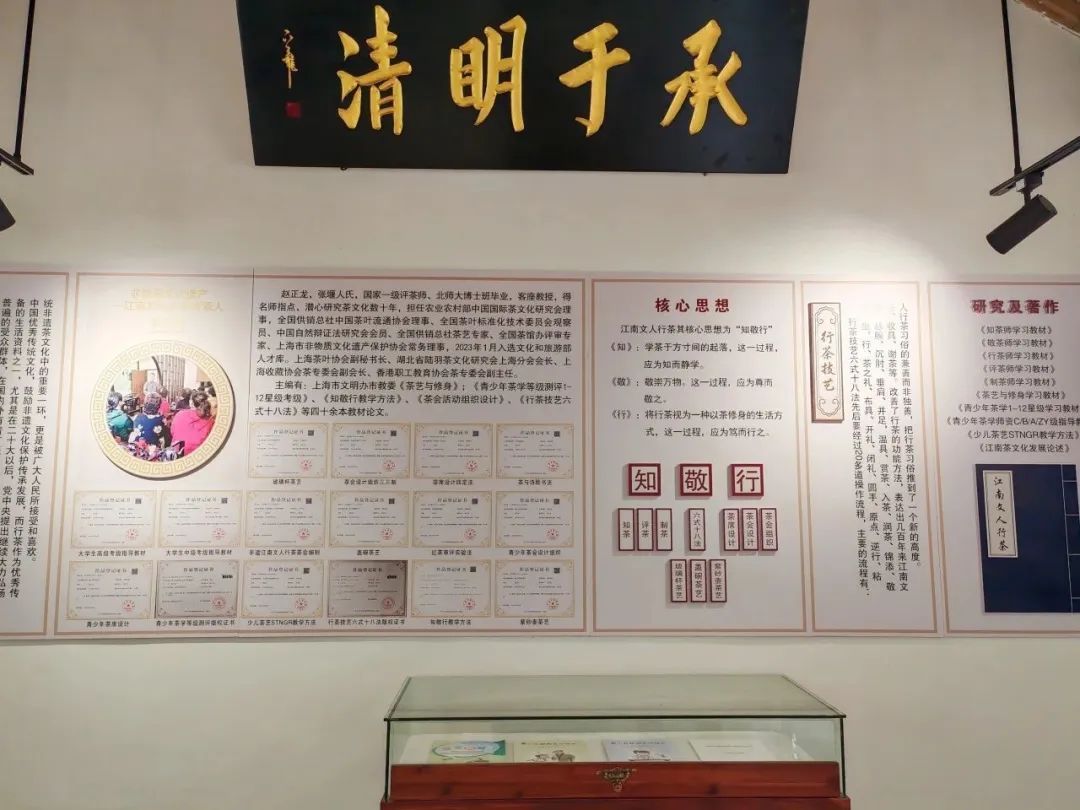 承于明清
统非遗茶文化中的重要一环，更是被广大人民所接受和喜欢。
中国优秀传统文化，鼓励非遗文化保护传承发展，而行茶作为优秀传
备的生活资料之一，尤其是在二十大以后，党中央提出继续大力弘扬
赵正龙，张堰人氏，国家一级评茶师、北师大博士班毕业，客座教授，得
名师指点，潜心研究茶文化数十年，担任农业农村部中国国际茶文化研究会理
事，全国供销总社中国茶叶流通协会理事、全国茶叶标准化技术委员会观察
员、中国自然辩证法研究会会员、全国供销总社茶艺专家、全国茶馆办评审专
家、上海市非物质文化遗产保护协会常务理事，2023年1月入选文化和旅游部
人才库。上海茶叶协会副秘书长、湖北省陆羽茶文化研究会上海分会会长、上
海收藏协会茶专委会副会长、香港职工教育协会茶专委会副主任。
主编有：上海市文明办市教委《茶艺与修身》；《青少年茶学等级测评1-
12星级考级》、《知敬行教学方法》、《茶会活动组织设计》、《行茶技艺六
式十八法》等四十余本教材论文。
玻璃杯茶艺
茶会设计组织三三制
茶席设计找定法
茶与诗歌书法
大学生高级考级指导教材
大学生中级考级指导教材
非遗江南文人行茶茶会编制
盖碗茶艺
红茶审评实验法
青少年茶会设计组织
青少年茶席设计
青少年茶学等级测评版权证书
少儿茶艺STNGR教学方法
行茶技艺六式十八法版权证书
知敬行教学方法
紫砂壶茶艺
核心思想
江南文人行茶其核心思想为“知敬行”
《知》：学茶于方寸间的起落，这一过程，
应为知而静学。
《敬》：敬崇万物，这一过程，应为尊而
敬之。
《行》：将行茶视为一种以茶修身的生活方
式，这一过程，应为笃而行之。
知 敬 行
知茶
评茶
制茶
六式十八法
茶席设计
茶会设计
茶会组织
玻璃杯茶艺
盖碗茶艺
紫砂壶茶艺
行茶技艺
人行茶习俗的兼善而非独善，把行茶习俗推到了一个新的高度。
收具、谢茶等。改善了行茶的功能方法，表达出几百年来江南文
沉肘、垂肩、并足、温具、赏茶、入茶、润茶、锦添、敬
行、茶之礼、布具、开礼、闭礼、圆手、原点、逆行、粘
行茶技艺六式十八法先后要经过20多道操作流程，主要的流程有：
研究及著作
《知茶师学习教材》
《敬茶师学习教材》
《行茶师学习教材》
《评茶师学习教材》
《制茶师学习教材》
《茶艺与修身学习教材》
《青少年茶学1-12星级学习教材
《青少年茶学师资C/B/A/ZY级指导教
《少儿茶艺STNGR教学方法》
《江南茶文化发展论述》
江南文人行茶